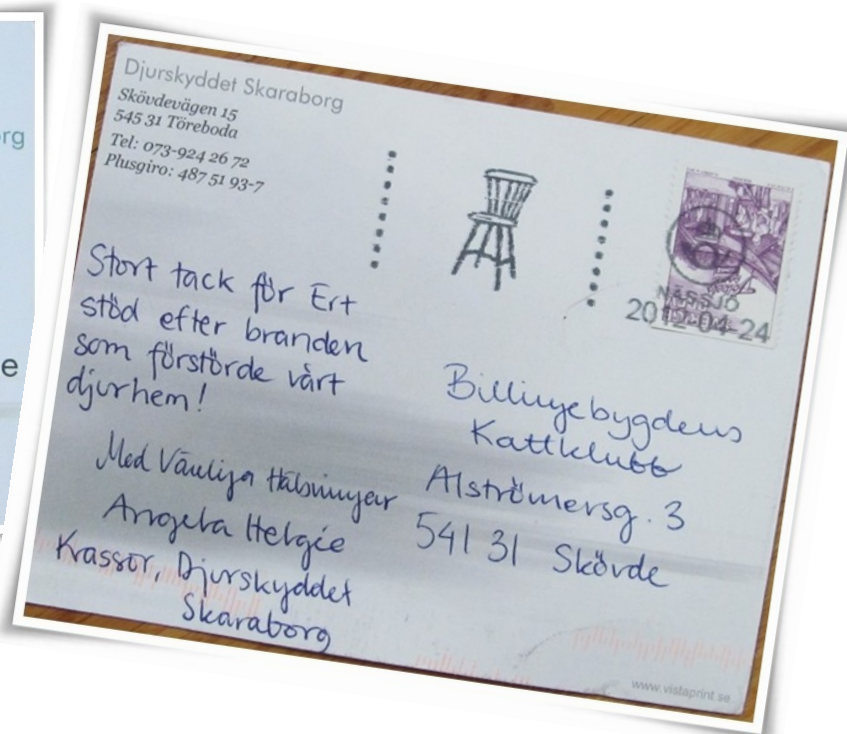 rg
e
Djurskyddet Skaraborg
Skövdevägen 15
545 31 Töreboda
Tel: 073-924 26 72
Plusgiro: 487 51 93-7
NÄSSJÖ
2012-04-24
Stort tack för Ert
stöd efter branden
som förstörde vårt
djurhem!
Med Vänliga Hälsningar
Angela Helgée
Kassör, Djurskyddet
Skaraborg
Billingebygdens
Kattklubb
Alströmersg. 3
541 31 Skövde
www.vistaprint.se